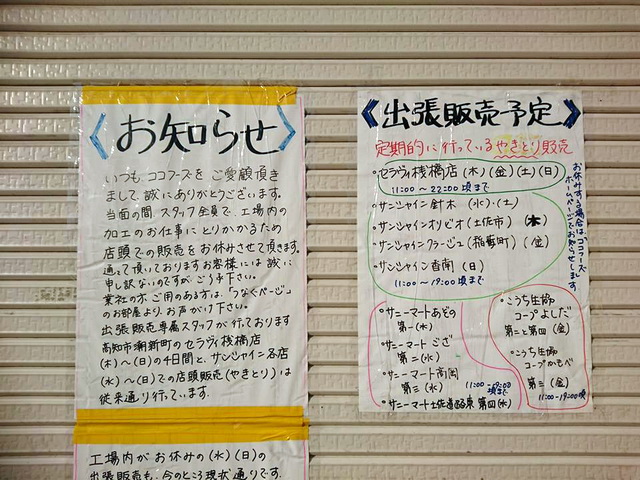 お知らせ
いつも、ココフーズを ご愛顧頂き
まして、誠にありがとうございます。
当面の間、スタッフ全員で、工場内の
加工のお仕事にとりかかるため
店頭での販売をお休みさせて頂きます。
通って頂いておりますお客様には誠に
申し訳ないのですが ご了承下さい。
業社の方、ご用のある方は、「つなぐページ」
のお部屋より、お声がけ下さい。
出張販売専属スタッフが行っております
高知市潮新町の セラヴィ桟橋店
(木)〜(日)の4日間と、サンシャイン各店
(水)〜(日)での店頭販売(やきとり)は
従来通り行っています。
工場内がお休みの(水)(日)の
出張販売も、今のところ現状通りです。
《出張販売予定》
定期的に行っているやきとり販売
・セラヴィ桟橋店(木)(金)(土)(日)
11:00〜22:00頃まで
・サンシャイン針木 (水)・(土)
・サンシャインオリビオ(土佐市)(木)
・サンシャインクラージュ(稲荷町)(金)
・サンシャイン香南 (日)
11:00〜19:00頃まで
お休みする場合は、ココフーズ
ホームページでお知らせします
・サニーマートあぞの
第一(水)
・サニーマート ござ
第二(水)
・サニーマート高岡
第三(水)
11:00〜19:00
頃まで
・サニーマート土佐道路東 第四(水)
・こうち生協
コープよしだ
第二と第四(金)
・こうち生協
コープかもべ
第三(金)
11:00〜19:00頃